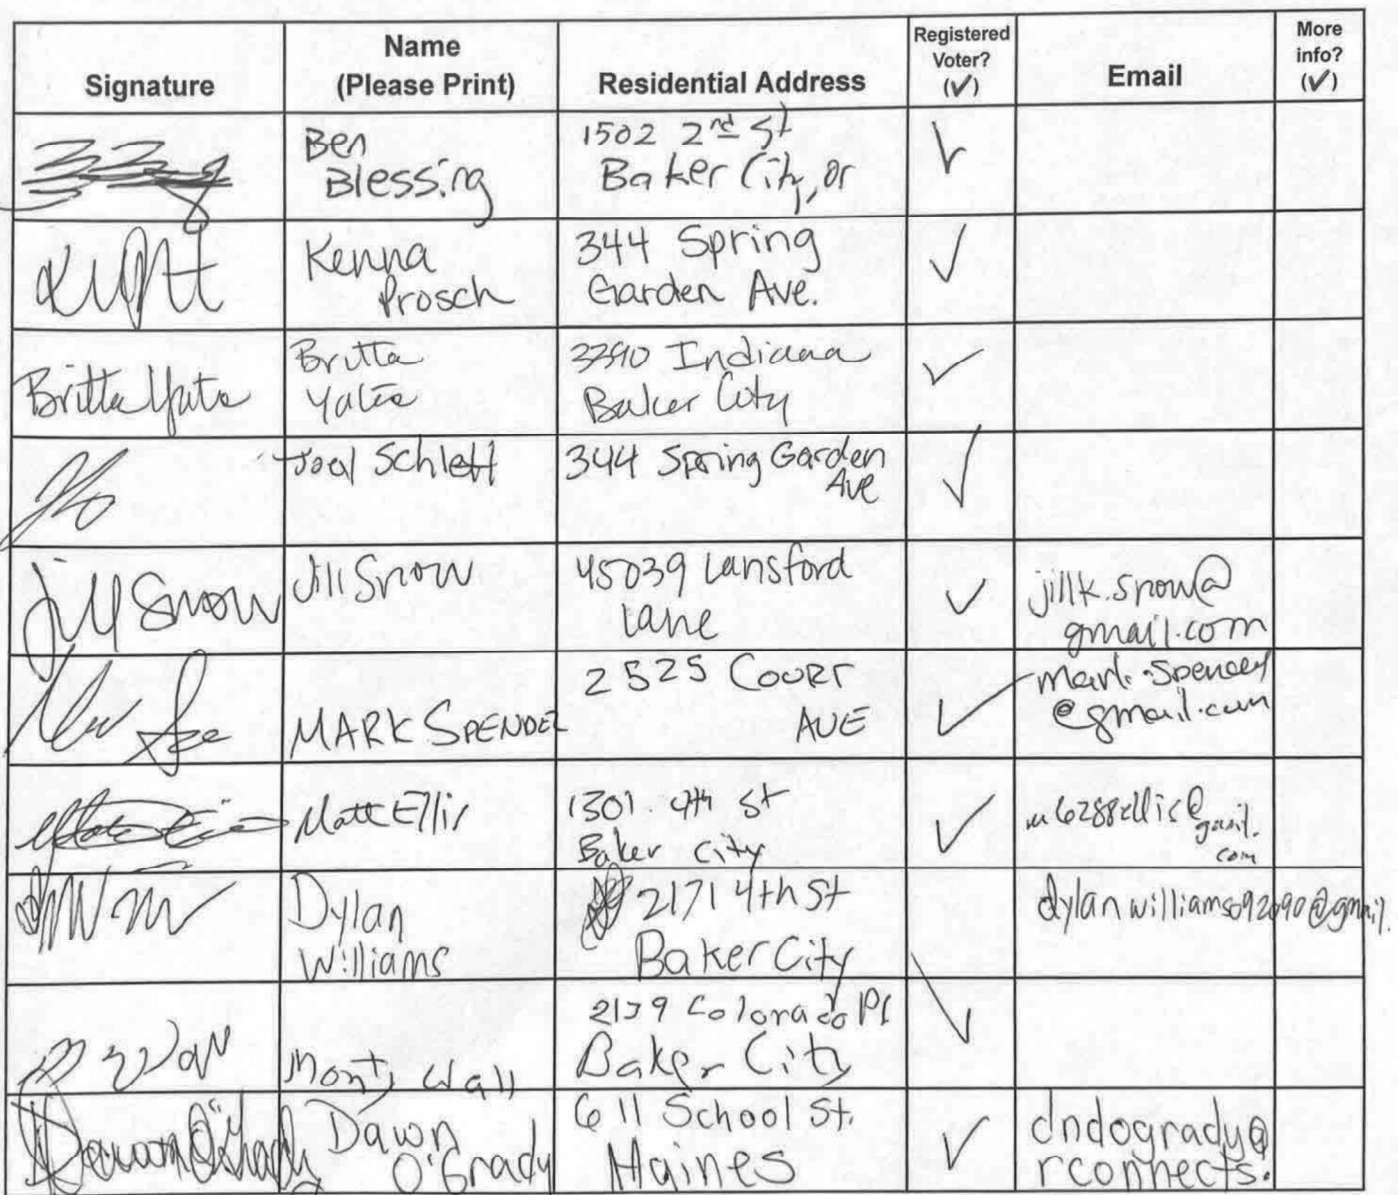 Signature
Name
(Please Print)
Residential Address
Registered
Voter?
(✓)
Email
More
info?
(✓)
Ben
Blessing
1502 2nd St
Baker City, or
Kenna
Prosch
344 Spring
Garden Ave.
Britta Yates
Britta
Yates
3390 Indiana
Baker City
Joel Schlett
344 Spring Garden
Ave
Jill Snow
Jill Snow
45039 Lansford
Lane
jillk.snow@
gmail.com
MARK SPENCER
2525 COURT
AVE
@gmail.com
Matt Ellis
1301 4th St
Baker City
m6288ellis@gmail.
com
Dylan
Williams
2171 4th St
Baker City
dylanwilliams092090@gmail.
Monty Wall
Colorado Pl
Baker City
Dawn O'Grady
Dawn
O'Grady
611 School St.
Haines
dndogrady@
rconnects.